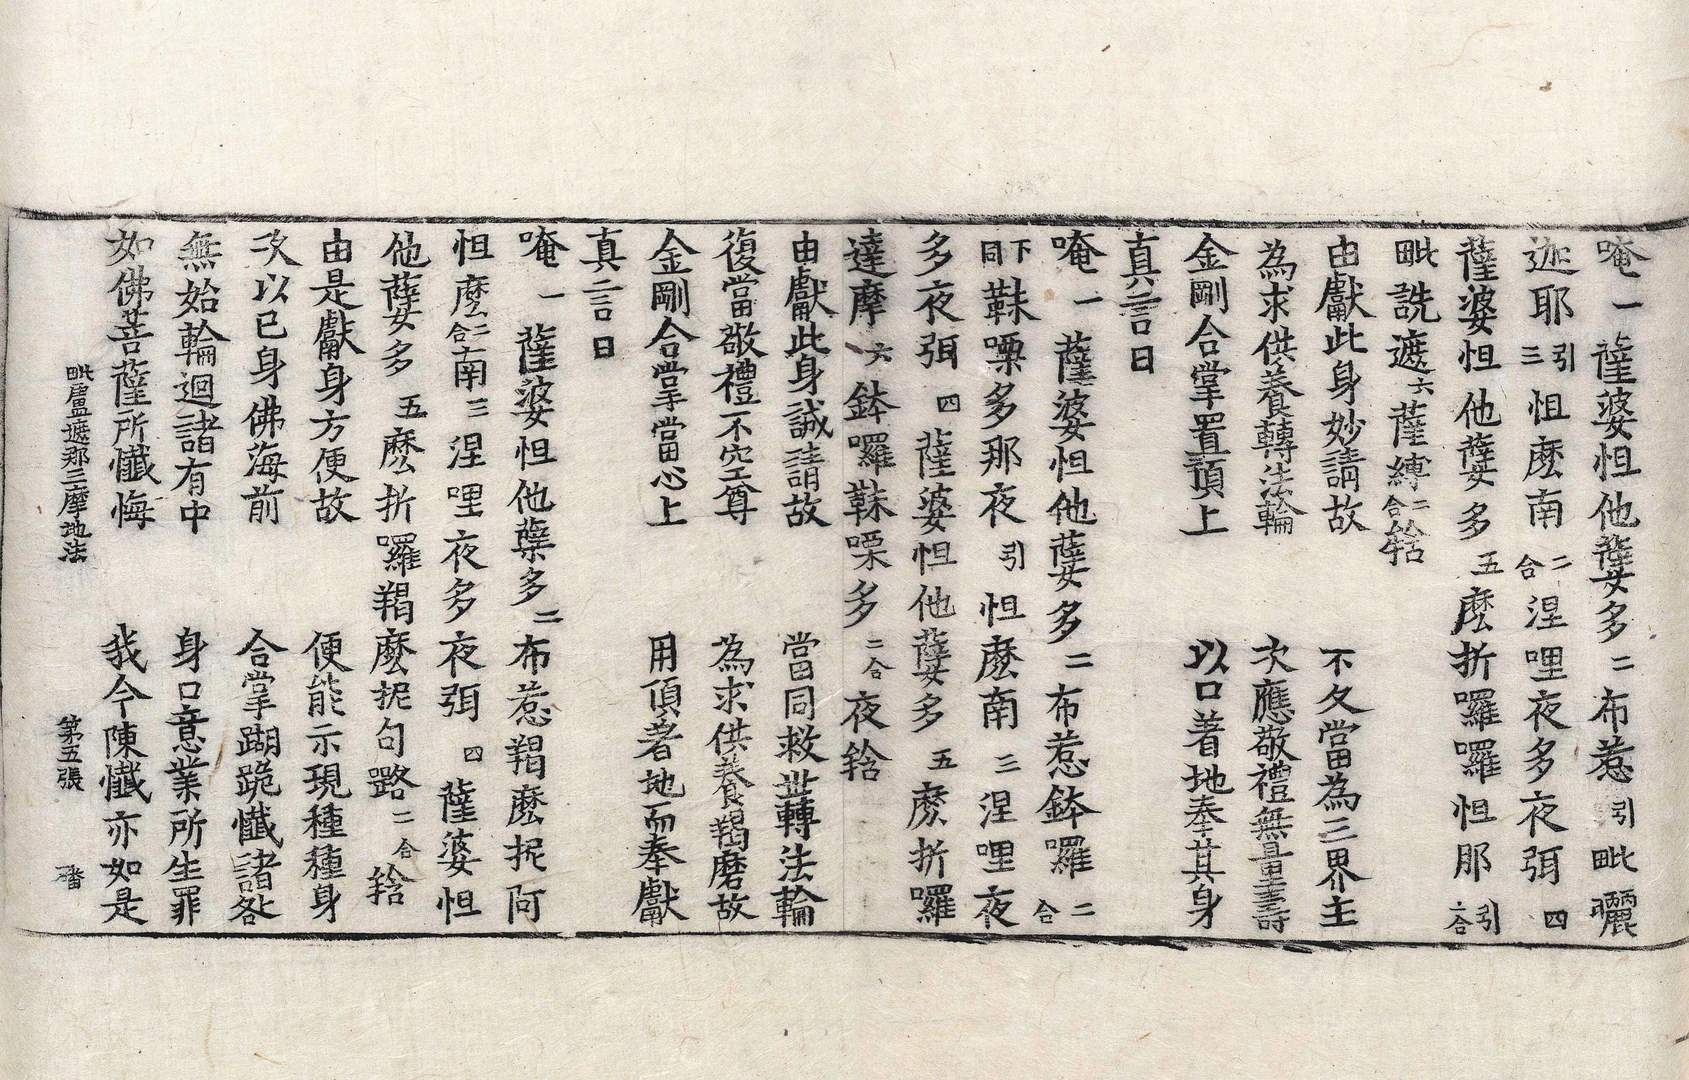 唵一薩婆怛他蘖多二布惹引毗曬
迦耶引三怛麽南二合涅哩夜多夜弭四
薩婆怛他蘖多五麽折囉囉怛那引二合
毗詵遮六薩縛二合𤙖
由獻此身妙請故　不久當為三界主
為求供養轉法輪　次應敬禮無量壽
金剛合掌置頂上　以口著地奉其身
真言曰
唵一薩婆怛他蘖多二布惹鉢囉二合
下同靺㗚多那夜引怛麽南三涅哩夜
多夜弭四薩婆怛他蘖多五麽折囉
達摩六鉢囉靺㗚多二合夜𤙖
由獻此身誠請故　當同救世轉法輪
復當敬禮不空尊　為求供養羯磨故
金剛合掌當心上　用頂著地而奉獻
真言曰
唵一薩婆怛他蘖多二布惹羯麽抳阿
怛麽二合南三涅哩夜多夜弭四薩婆怛
他蘖多五麽折囉羯麽抳句嚕二合𤙖
由是獻身方便故　便能示現種種身
次以己身佛海前　合掌𨄔跪懺諸咎
無始輪迴諸有中　身口意業所生罪
如佛菩薩所懺悔　我今陳懺亦如是
毗盧遮那三摩地法　第五張